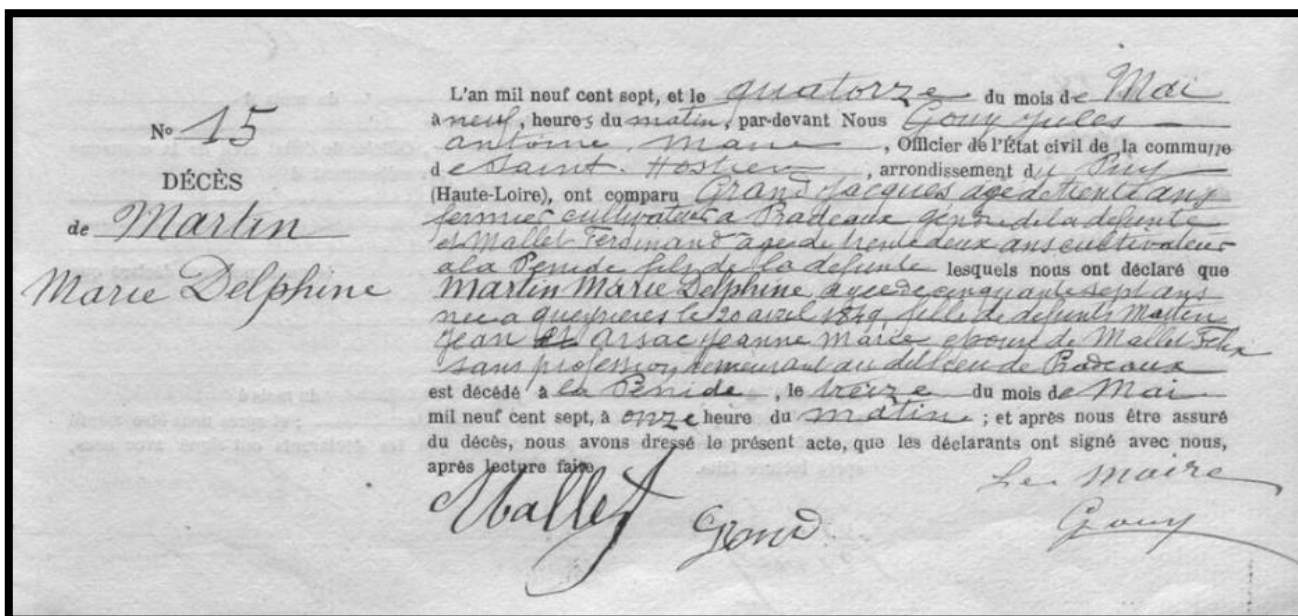 N° 15
DÉCÈS
de Martin
Marie Delphine
L'an mil neuf cent sept, et le quatorze du mois de Mai
à neuf, heures du matin, par-devant Nous Gouy Jules
antoine Marie, Officier de l'État civil de la commune
de Saint-Hostien, arrondissement du Puy
(Haute-Loire), ont comparu Grand Jacques agé de trente ans
fermier cultivateur a Pradeaux gendre de la défunte
et Mallet Ferdinand age de trente deux ans cultivateur
a la Penide fils de la defunte lesquels nous ont déclaré que
Martin Marie Delphine, agee de cinquante sept ans
nee a queyrieres le 20 avril 1849, fille de defunts Martin
Jean et Arsac Jeanne Marie epouse de Mallet Felix
sans profession demeurant au de Pradeaux
est décédé à la Penide, le treize du mois de Mai
mil neuf cent sept, à onze heure du matin ; et après nous être assuré
du décès, nous avons dressé le présent acte, que les déclarants ont signé avec nous,
après lecture faite.
Le Maire
Mallet Grand Gouy